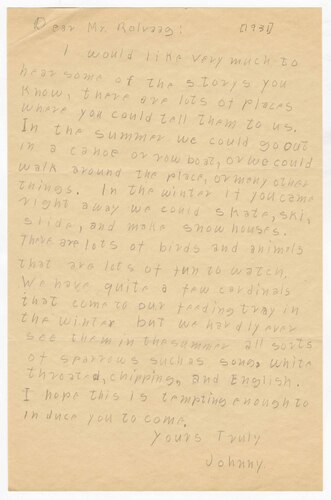 Dear Mr. Rolvaag: [1931]
I would like very much to
hear some of the storys you
know, there are lots of places
where you could tell them to us.
In the summer we could go out
in a canoe or row boat, or we could
walk around the place, or many other
things. In the winter if you came
right away we could skate, ski,
slide, and make snow houses.
There are lots of birds and animels
that are lots of fun to watch.
We have quite a few cardinals
that come to our feeding tray in
the winter but we hardly ever
see them in the summer all sorts
of sparrows such as song, white
throated, chipping, and English.
I hope this is tempting enough to
induce you to come.
Yours Truly
Johnny.